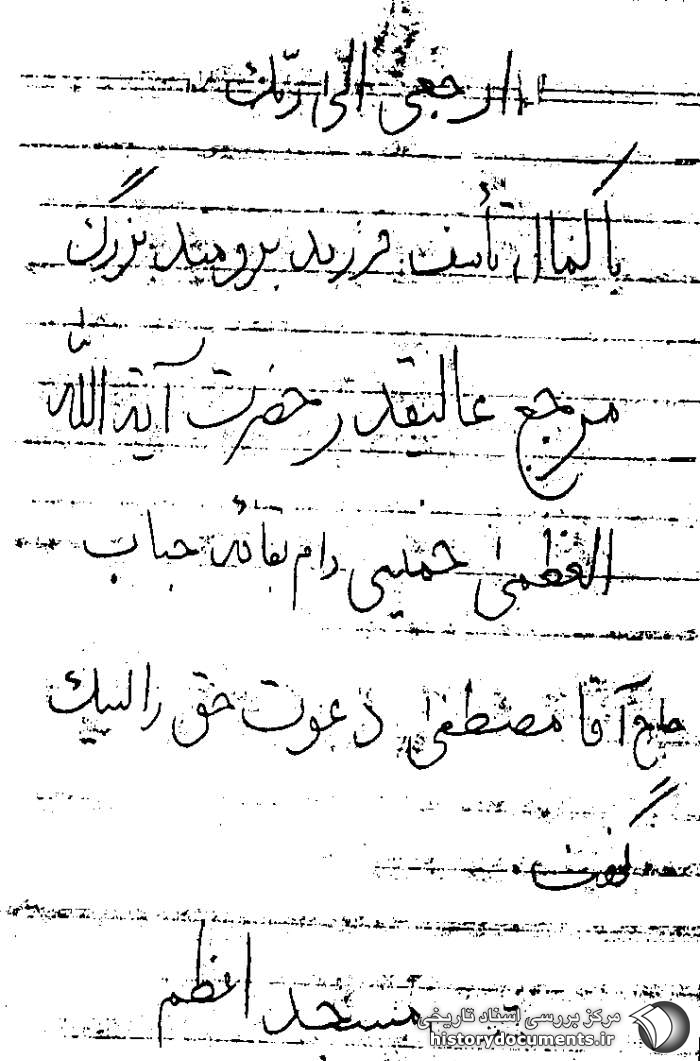 ارجعی الی ربّک
با کمال تأسف فرزند برومند بزرگ
مرجع عالیقدر حضرت آیة اللّه
العظمیٰ خمینی دام بقائه جناب
حاج آقا مصطفیٰ دعوت حق را لبیک
گفت.
مسجد اعظم
مرکز بررسی اسناد تاریخی
historydocuments.ir